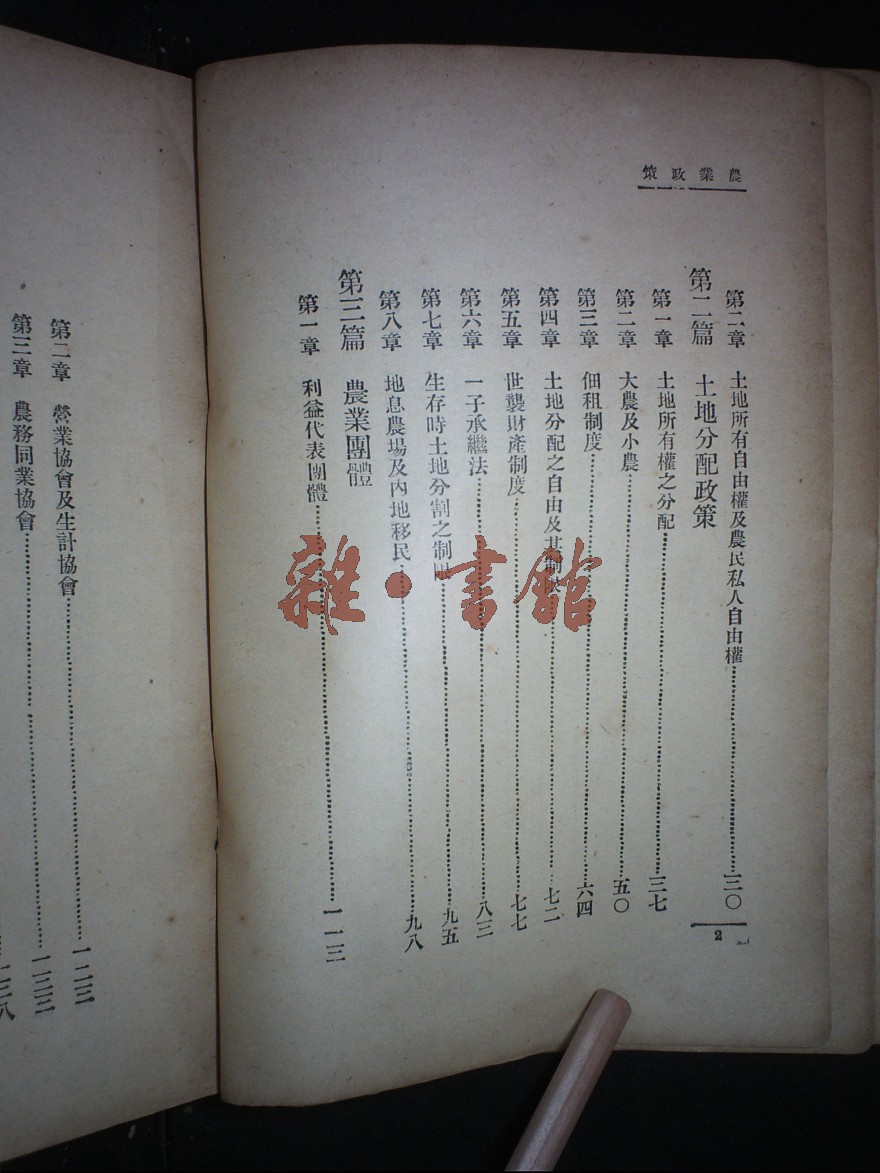 農業政策
第二章 土地所有自由權及農民私人自由權 三〇
第二篇 土地分配政策
第一章 土地所有權之分配 三七
第二章 大農及小農 五〇
第三章 佃租制度 六四
第四章 土地分配之自由及其制 七二
第五章 世襲財產制度 七七
第六章 一子承繼法 八三
第七章 生存時土地分割之制 九五
第八章 地息農場及內地移民 九八
第三篇 農業團體
第一章 利益代表團體 一一三
2
第二章 營業協會及生計協會 一二三
第三章 農務同業協會 一三三
雜·書館